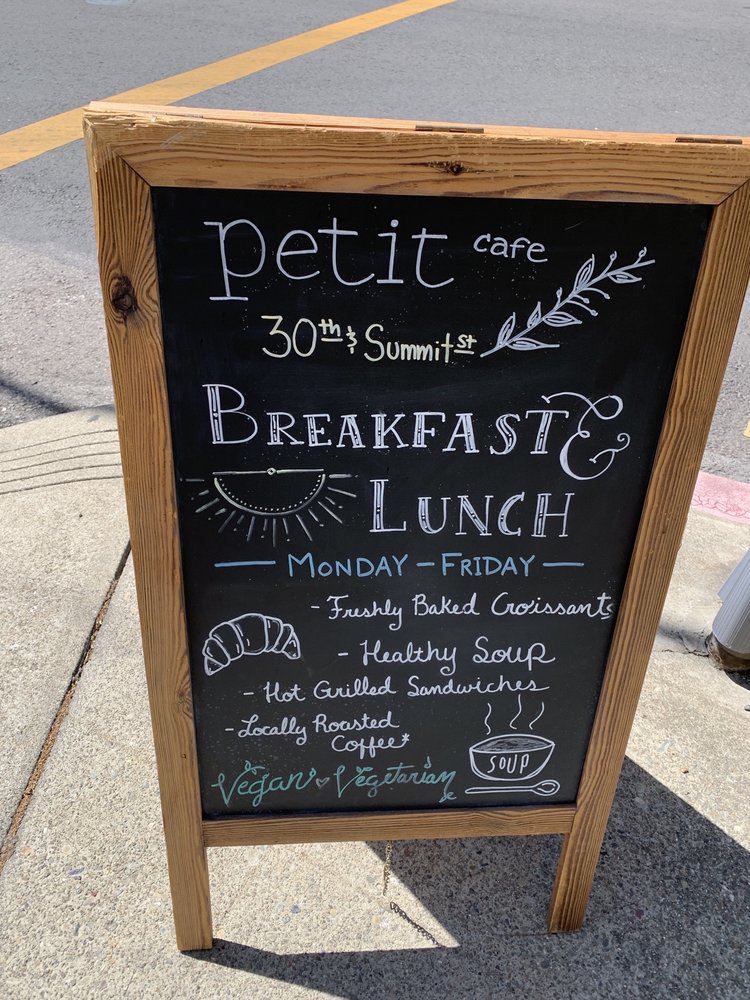 petit cafe
30th & Summit st
BREAKFAST &
LUNCH
MONDAY - FRIDAY
- Freshly Baked Croissants
- Healthy Soup
- Hot Grilled Sandwiches
- Locally Roasted
Coffee*
Vegan Vegetarian
SOUP